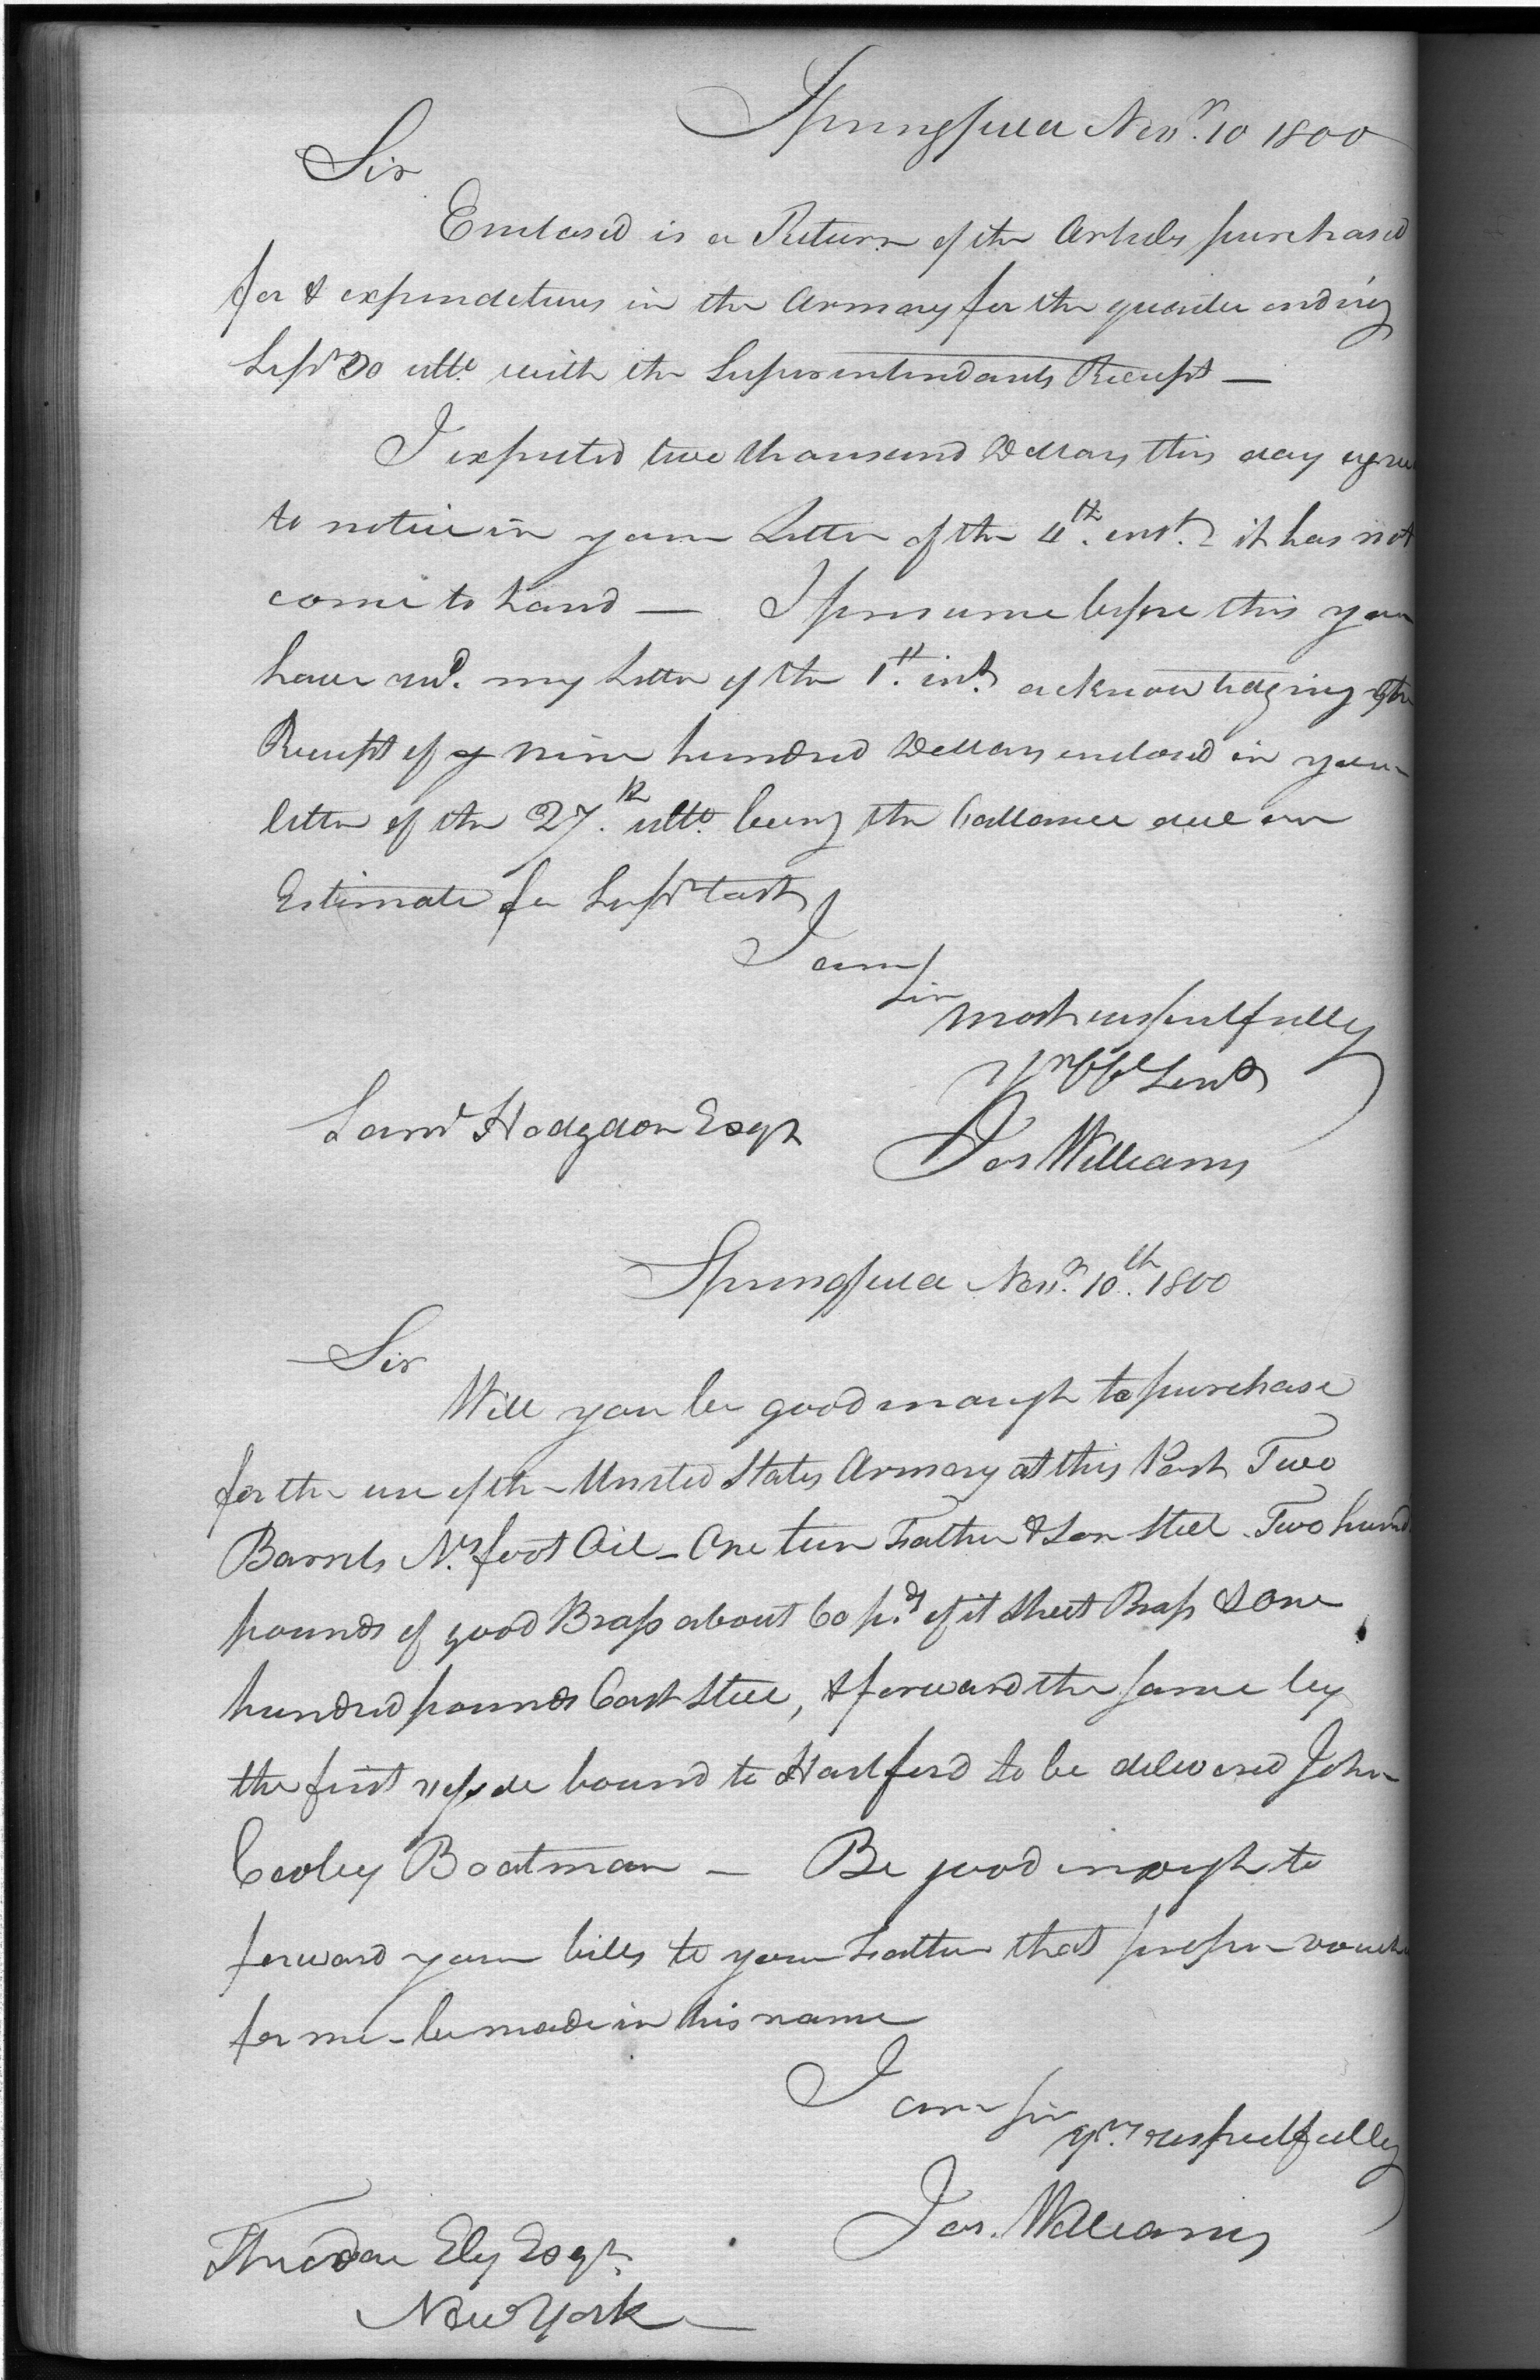 Springfield Novr. 10 1800
Sir
Enclosed is a Return of the Articles purchased
for & expenditures in the Armory for the quarter ending
Sepr 30 ullto. with the Superintendants Receipt —
I expected two thousand Dollars this day agree
to notice in your Letter of the 4th. inst. it has not
come to hand — I presume before this you
have recd. my Letter of the 1st. inst. acknowledging the
Receipt of nine hundred Dollars enclosed in your
letter of the 27th. ullto. being the ballance due on
Estimate for Sepr last
I am
Sir
most respectfully
Yr Ob Servt
Saml Hodgdon Esqr
Jos Williams
Springfield Novr. 10th. 1800
Sir
Will you be good enough to purchase
for the use of the United States Armory at this Post Two
Barrels Ns. foot Oil – One tun Father & Son Steel – Two hund
pounds of good Brass about 60 pds. of it Sheet Brass & One
hundred pounds Cast Steel, & forward the same by
the first bound to Hartford to be delivered John
Cooley Boatman — Be good enough to
forward your bills to your Father that proper vouch
for me – be made in his name
I am Sir
yrs. respectfully
Jos. Williams
Theodore Ely Esqr.
New York